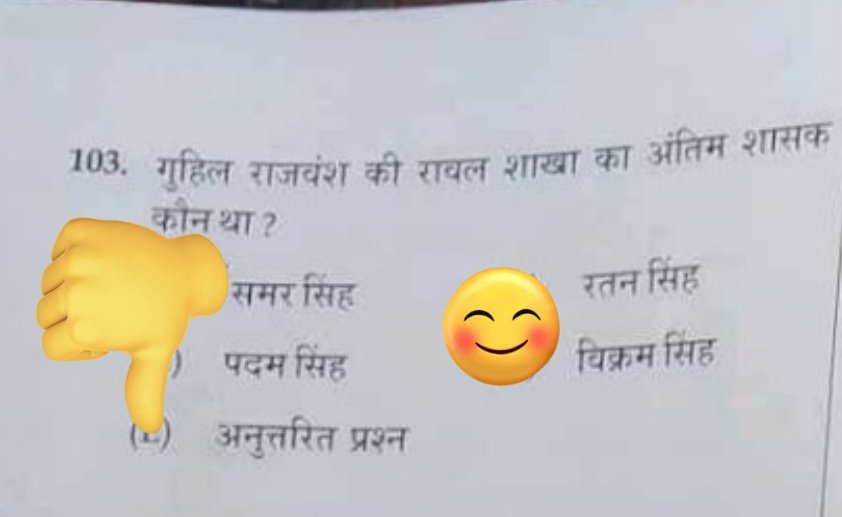 103. गुहिल राजवंश की रावल शाखा का अंतिम शासक
कौन था ?
समर सिंह रतन सिंह
) पदम सिंह विक्रम सिंह
अनुत्तरित प्रश्न